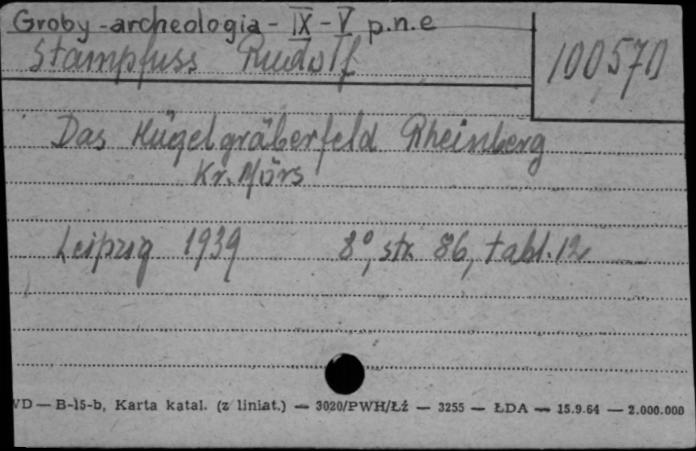 Groby - archeologia - IX - V p.n.e
Stampfuss Rudolf
100570
Das Hügelgräberfeld Rheinberg
Kr. Mörs
Leipzig 1939 8°, str. 86, tabl. 12
VD — B-15-b, Karta katal. (z liniat.) — 3020/PWH/Łź — 3255 — ŁDA — 15.9.64 — 2.000.000